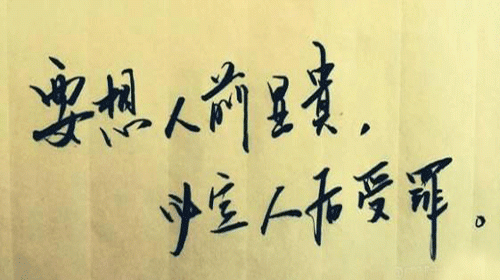 要想人前显貴，
必定人后受罪。